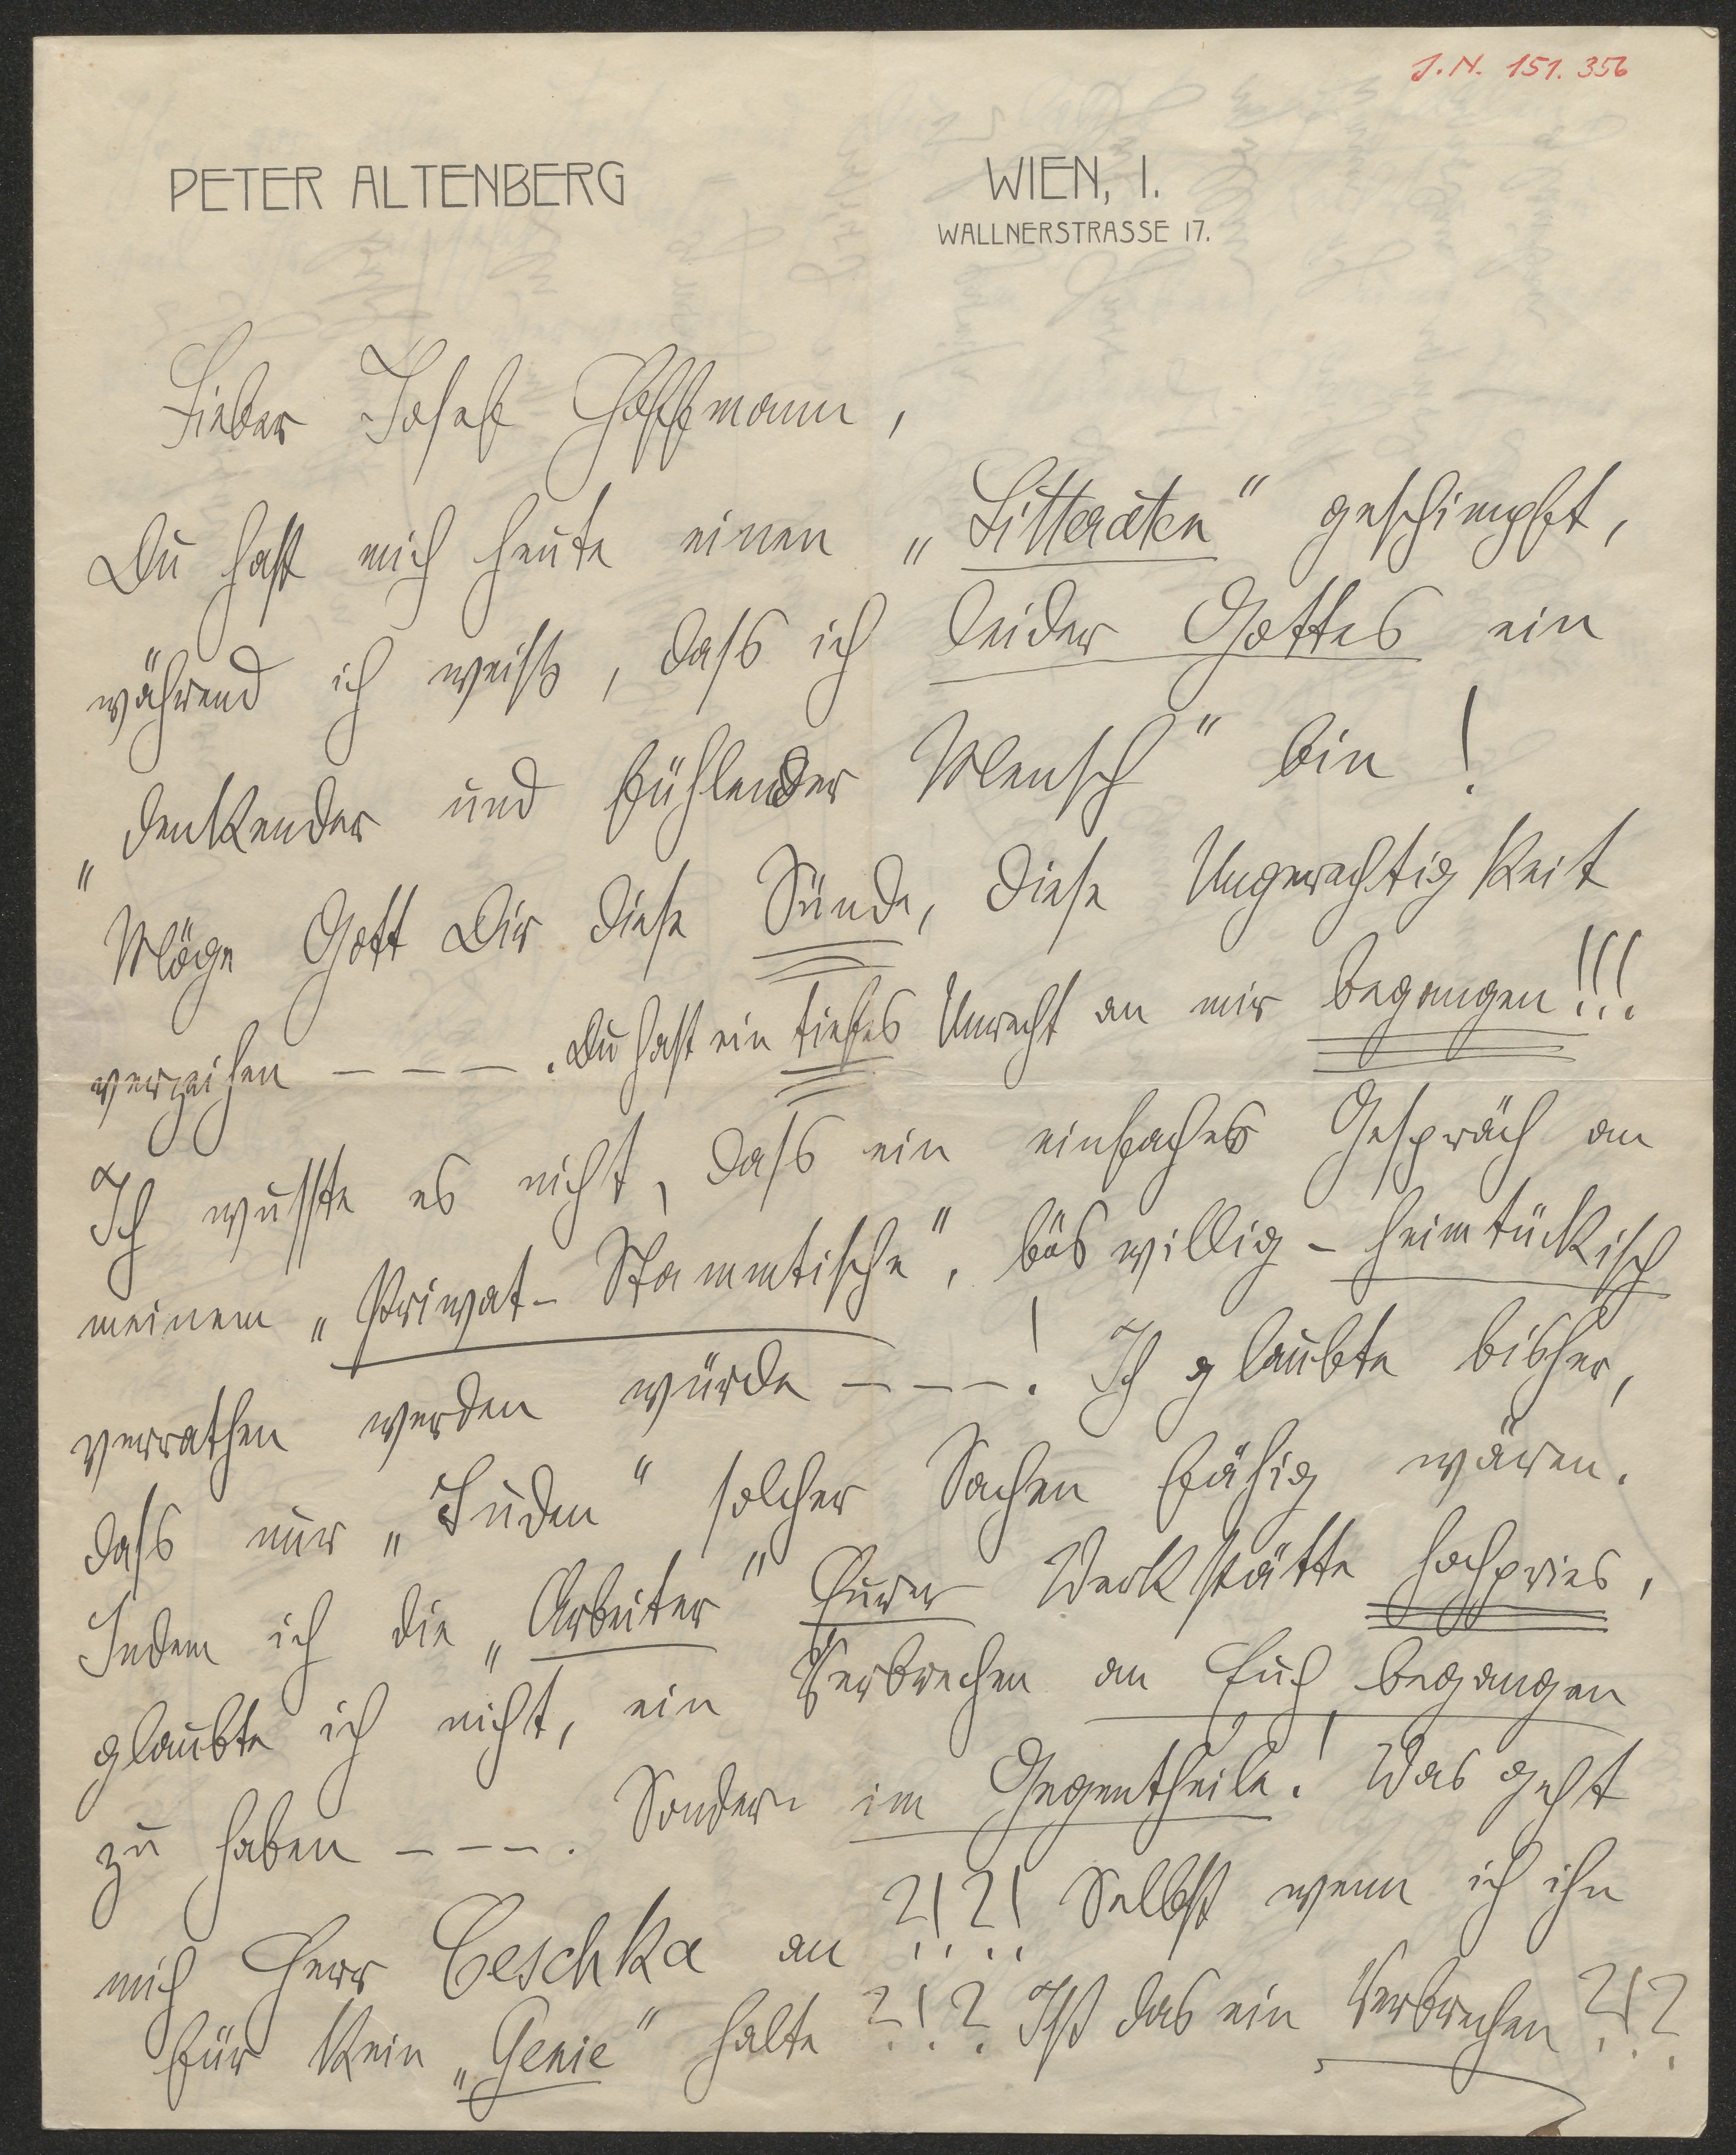 J. N. 151. 356
PETER ALTENBERG
WIEN, I.
WALLNERSTRASSE 17.
Lieber Josef Hoffmann,
Du hast mich heute einen „Litteraten“ geschimpft,
während ich weiß, dass ich leider Gottes ein
„denkender und fühlender Mensch“ bin!
Möge Gott Dir diese Sünde, diese Ungerechtigkeit
verzeihen – – – . Du hast ein tiefes Unrecht an mir begangen!!!
Ich wusste es nicht, dass ein einfaches Gespräch an
meinem „Privat-Stammtische“, böswillig-heimtückisch
verrathen werden würde – – – ! Ich glaubte bisher,
dass nur „Juden“ solcher Sachen fähig wären.
Indem ich die „Arbeiter“ Eurer Werkstätte hochpries,
glaubte ich nicht, ein Verbrechen an Euch begangen
zu haben – – – . Sondern im Gegentheile! Was geht
mich Herr Ceschka an ?!?! Selbst wenn ich ihn
für kein „Genie“ halte ?!? Ist das ein Verbrechen ?!?